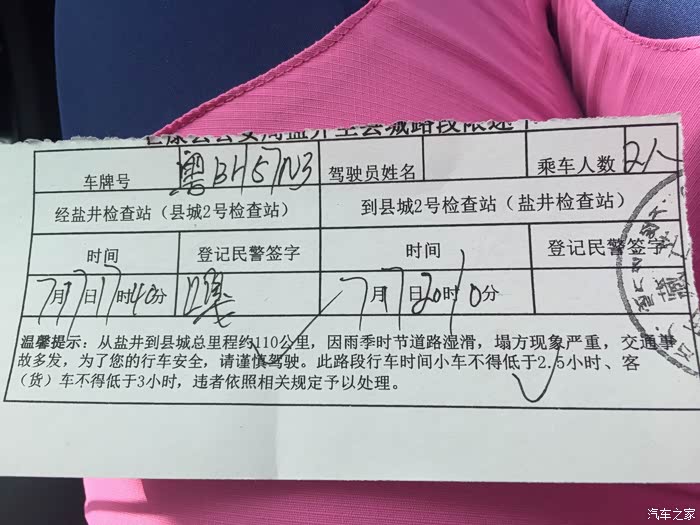 芒康县公安局盐井至县城路段限速卡
车牌号 粤BH57N3 驾驶员姓名 乘车人数 2人
经盐井检查站（县城2号检查站） 到县城2号检查站（盐井检查站）
时间 登记民警签字 时间 登记民警签字
7月17日17时40分 7月17日20时10分
温馨提示：从盐井到县城总里程约110公里，因雨季时节道路湿滑，塌方现象严重，交通事
故多发，为了您的行车安全，请谨慎驾驶。此路段行车时间小车不得低于2.5小时、客
（货）车不得低于3小时，违者依照相关规定予以处理。
汽车之家